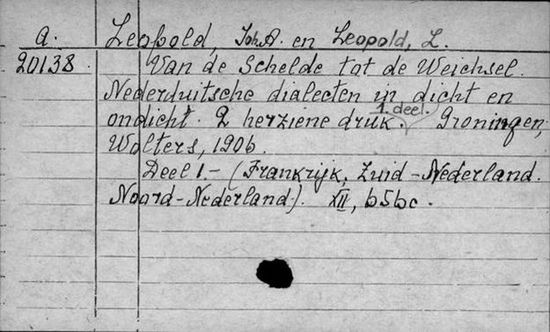 a. Leopold, Joh.A. en Leopold, L.
20138. Van de Schelde tot de Weichsel.
Nederduitsche dialecten in dicht en
ondicht. 2 herziene druk. 1. deel. Groningen,
Wolters, 1906.
Deel 1.- (Frankrijk, Zuid-Nederland.
Noord-Nederland). XII, 656c.